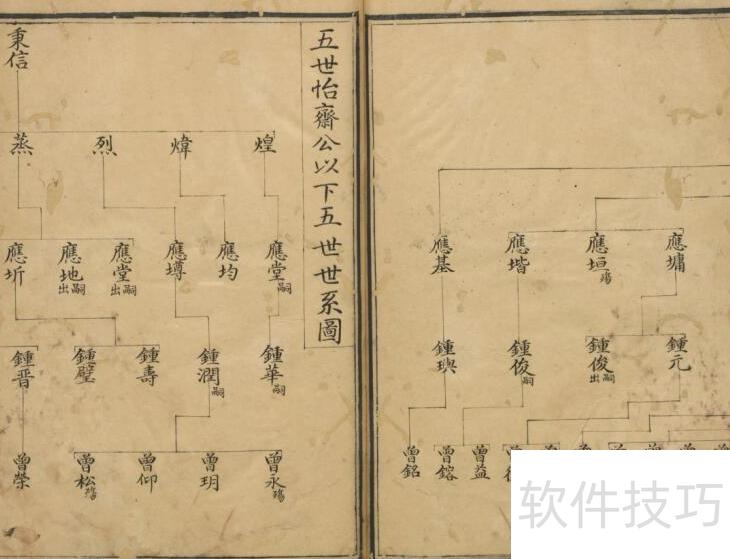 五世怡齋公以下五世世系圖
秉信
煌 煒 烈 蒸
應堂嗣 應均 應壿 應堂出嗣 應地出嗣 應圻
鍾華嗣 鍾潤嗣 鍾壽 鍾璧 鍾晋
曾永殤 曾玥 曾仰 曾松殤 曾榮
應墉 應垣殤 應堦 應基
鍾元 鍾俊出嗣 鍾俊嗣 鍾璵
曾益 曾鎔 曾銘
软件技巧